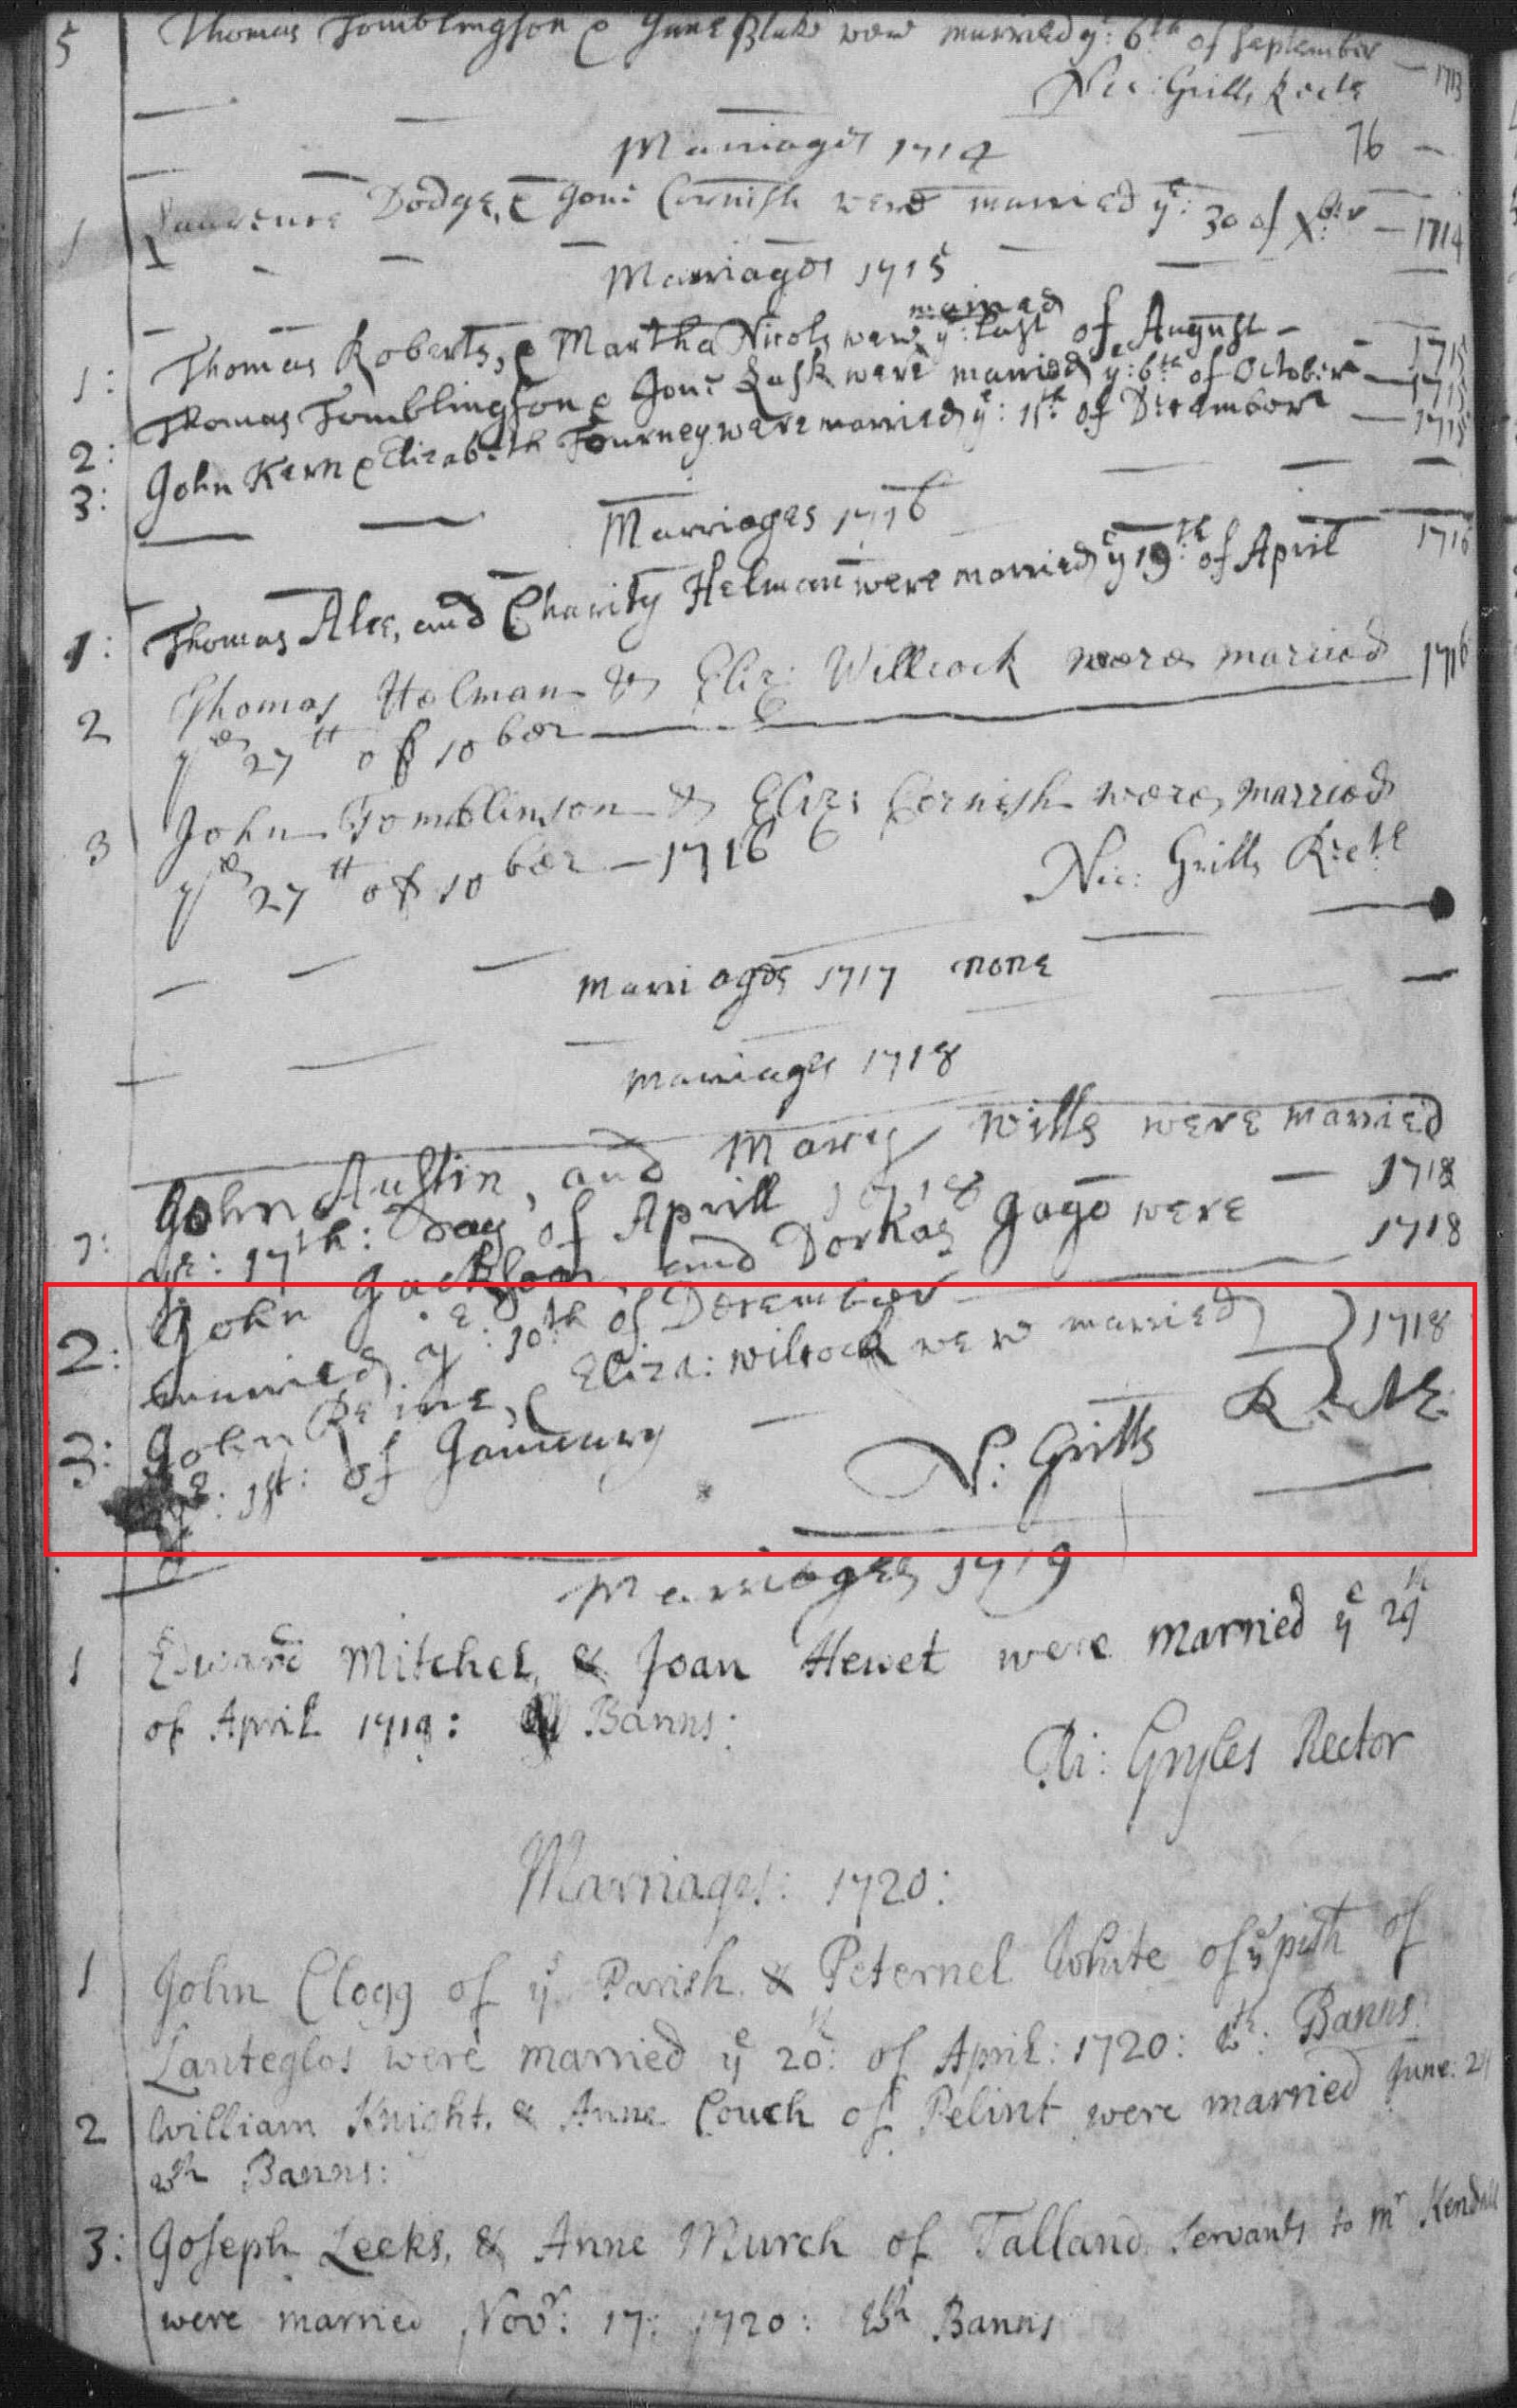 5 Thomas Tomblingson & Jane Blake were married yͤ: 6th of September — 1713
Nic: Grills Recte
Marriages 1714 76 —
1 Laurence Dodge, & Jone Cornish were married yͤ: 30 of Xber — 1714
Marriages 1715
married
1: Thomas Roberts, & Martha Nicols were yͤ: last of August — 1715
2: Thomas Tomblingson & Jone Lusk were married yͤ: 6th of October — 1715
3: John Kern & Elizabeth Tourney were married yͤ: 15th of December — 1715
Marriages 1716
1: Thomas Alee, and Charity Helman were married yͤ 19th of April 1716
2 Thomas Holman & Eliz: Willcock were married 1716
yͤ 27tt of 10ber
3 John Tomblinson & Eliz: Cornish were married
yͤ 27tt of 10ber — 1716
Nic: Grills Recte
Marriages 1717 none
Marriages 1718
1: John Austin, and Mary Wills were married
yͤ: 17th: Day of Aprill 1718 — 1718
2: John Jackson and Dorkas Gago were 1718
married yͤ: 10th of December
3: John Reine, & Eliza: Wilcock were married } 1718
yͤ: 1st: of January — N: Grills Recte
Marriages 1719
1 Edward Mitchel, & Joan Hewet were married yͤ 29th
of April 1719: Banns:
Ri: Gryles Rector
Marriages: 1720:
1 John Clogg of yͤ Parish & Peternel White of yͤ pish of
Lanteglos were married yͤ 20th: of April: 1720: wth: Banns:
2 William Knight, & Anne Couch of Pelint were married June: 24
wth Banns:
3: Joseph Leeks, & Anne Murch of Talland Servants to Mr Kendall
were married Novr: 17: 1720: wth Banns